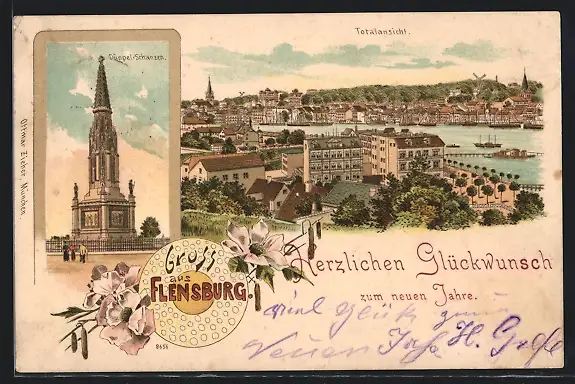 Totalansicht.
Düppel-Schanzen.
Ottmar Zieher, München.
Gross
aus
FLENSBURG.
Herzlichen Glückwunsch
zum neuen Jahre.
viel Glück zum
Neuen Jahr H.
8656